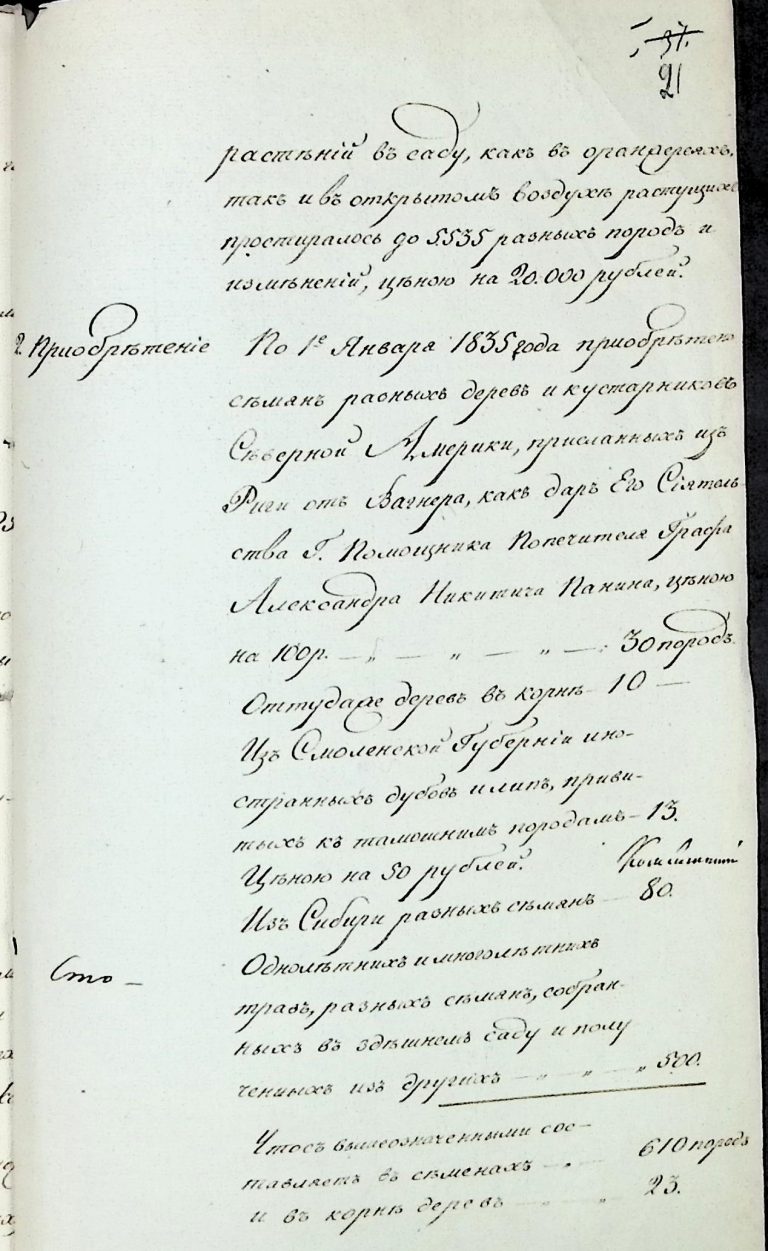 37.
21
растѣній въ саду, какъ въ оранжереяхъ,
такъ и въ открытомъ воздухѣ растущихъ
простиралось до 5535 разныхъ породъ и
измѣненій, цѣною на 20.000 рублей.
2. Приобрѣтеніе
По 1е Января 1835 года приобрѣтено
сѣмянъ разныхъ деревъ и кустарниковъ
Сѣверной Америки, присланныхъ изъ
Риги отъ Вагнера, какъ даръ Его Сіятель-
ства Г. Помощника Попечителя Графа
Александра Никитича Панина, цѣною
на 100 р. — „ — „ — „ — 30 породъ.
Оттудаже деревъ въ корнѣ — 10 —
Изъ Смоленской Губерніи ино-
странныхъ дубовъ и липъ, приви-
тыхъ къ тамошнимъ породамъ — 13.
Цѣною на 50 рублей.
Изъ Сибири разныхъ сѣмянъ — 80.
Однолѣтнихъ и многолѣтнихъ
травъ, разныхъ сѣмянъ, собран-
ныхъ въ здѣшнемъ саду и полу
ченныхъ изъ другихъ — „ — „ — „ 500.
Сто —
Что съ вышеозначенными сос-
тавляетъ въ сѣменахъ — „ — 610 породъ
и въ корнѣ деревъ — „ — „ 23.